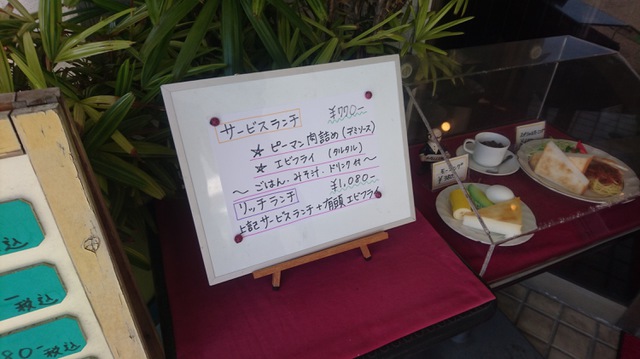 サービスランチ ¥770-
☆ ピーマン肉詰め (デミソース)
☆ エビフライ (タルタル)
〜ごはん・みそ汁・ドリンク付〜
リッチランチ ¥1,080-
上記サービスランチ+有頭エビフライ
税込
税込
80- 税込